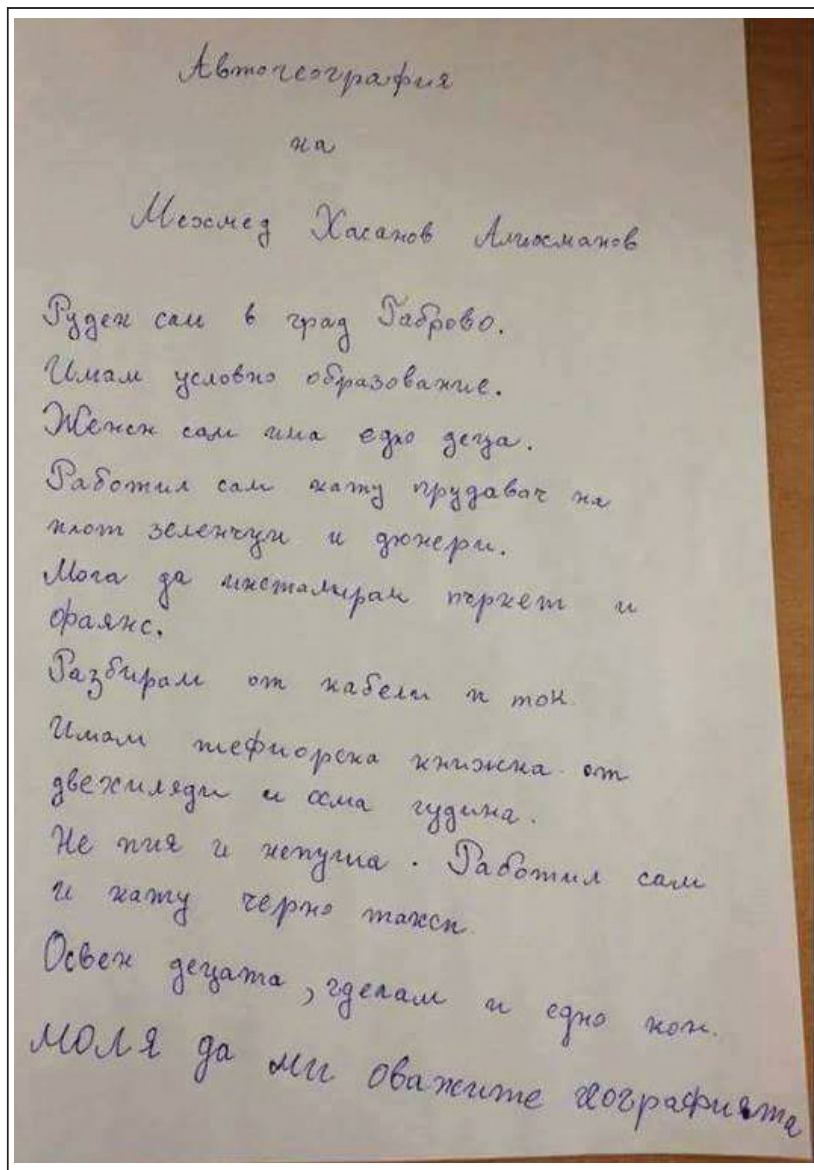 Автогеография
на
Мехмед Хасанов Алихманов
Руден сам в град Габрово.
Имам условно образование.
Женен сам има едно деца.
Работил сам кату прудавач на
плот зеленчуци и дюнери.
Мога да инсталирам пъркет и
фаянс.
Разбирам от кабели и ток.
Имам шефьорска книжка от
двехиляди и осма гудина.
Не пия и непуша. Работил сам
и кату черно такси.
Освен децата, гделам и едно кон.
МОЛЯ да ми оважите хографията